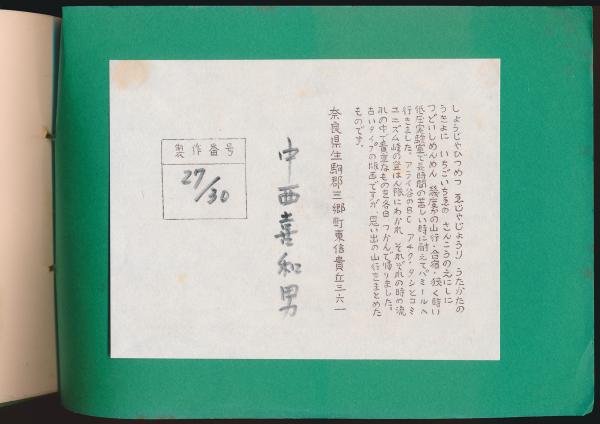 しょうじゃひつめつ ゑじゃじょうり うたかたの
うきよに いちごいちゑの さんこうのえにしに
つどいしめんめん 幾度かの山行・合宿・狭く暗い
低圧実験室で長時間の苦しい時に耐えてパミールへ
行きました。アライ谷のBC アチク・タシとコミ
ュニズム峰の登はん隊にわかれ それぞれの時の流
れの中で貴重なものを各自 つかんで帰りました。
古いタイプの版画ですが 思い出の山行をまとめた
ものです。
奈良県生駒郡三郷町東信貴丘三六一
中西喜和男
製作番号
27/30